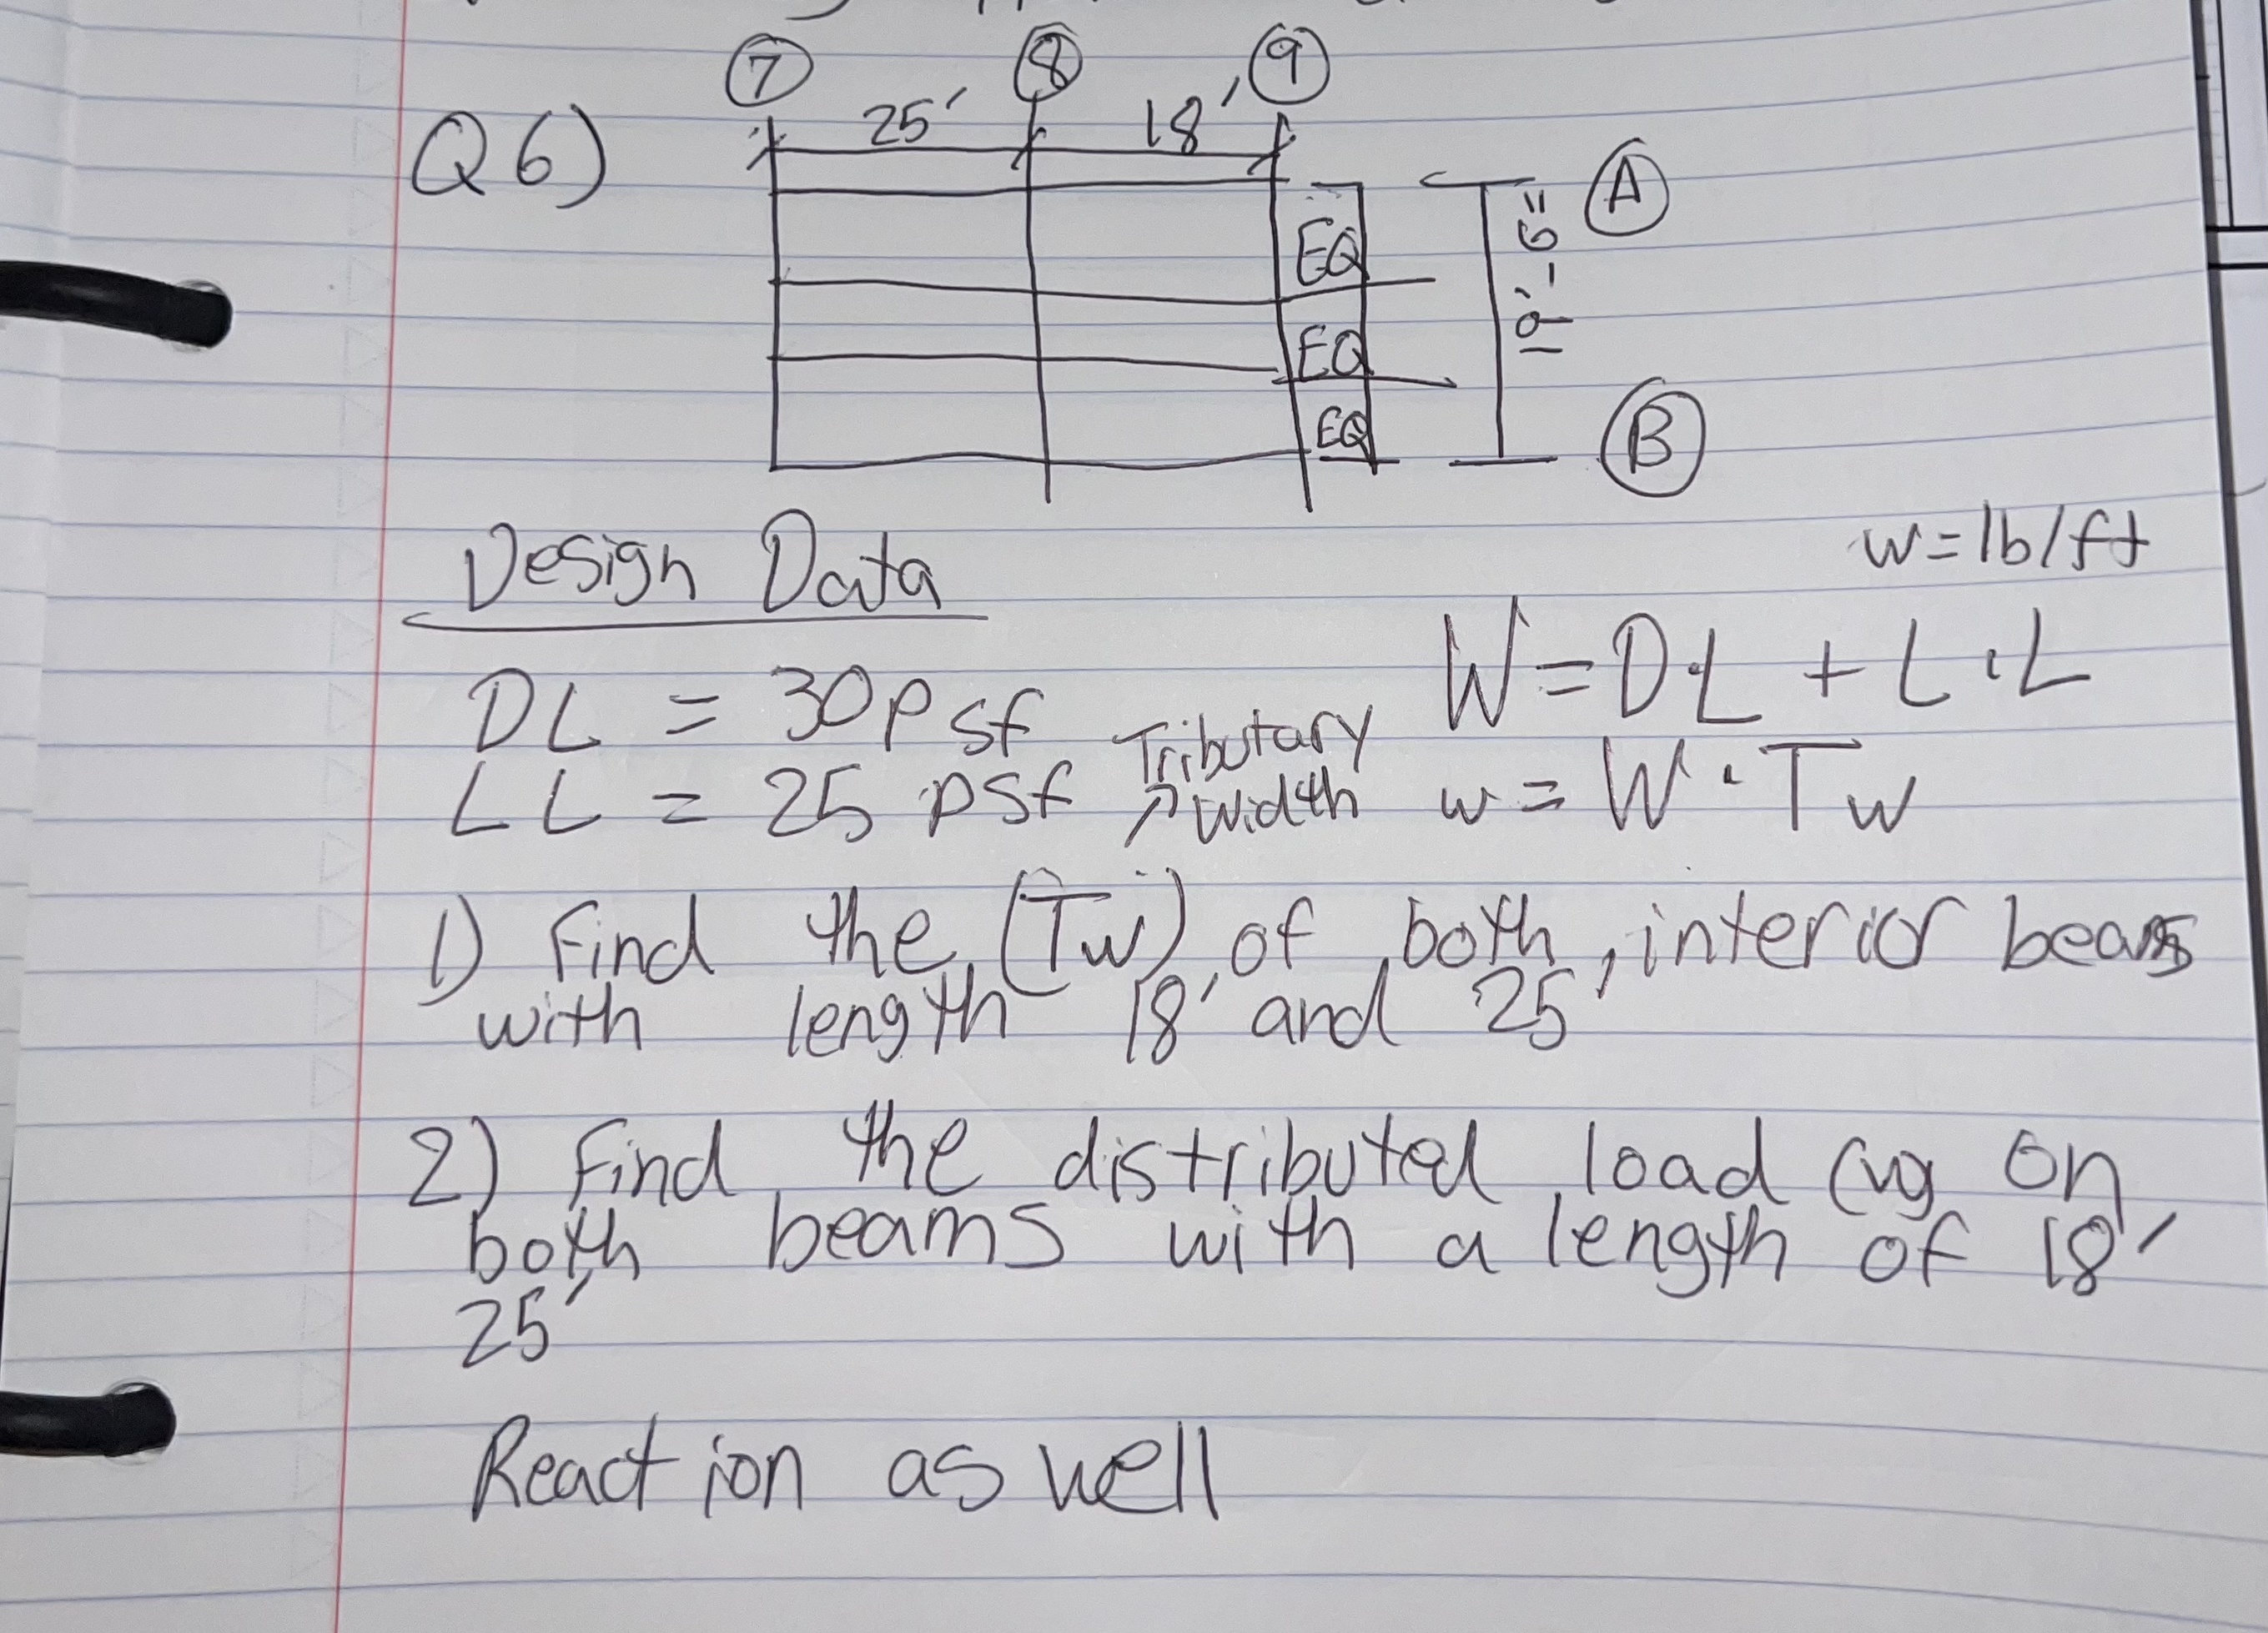 7 8 9
25' 18'
Q6)
A
EQ
19'-6"
EQ
EQ
B
Design Data
w=lb/ft
DL = 30psf
W=D.L + L.L
LL = 25 psf
Tributary
Width
w = W.Tw
1) Find the (Tw) of both, interior beams
with length 18' and 25'
2) Find the distributed load on
both beams with a length of 18'
25'
Reaction as well